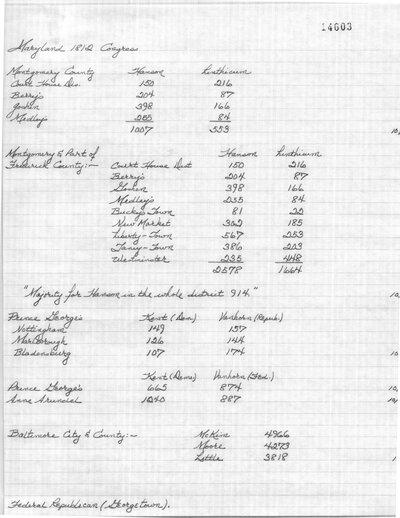 14603
Maryland 1812 Congress
Montgomery County Hanson Linthicum
Court House Dis. 150 216
Berry's 204 87
Goshen 398 166
Medley's 255 84
1007 553
Montgomery & Part of Hanson Linthicum
Frederick County:- Court House Dist 150 216
Berry's 204 87
Goshen 398 166
Medley's 255 84
Bucky's Town 81 22
New Market 302 185
Liberty-Town 567 253
Taney-Town 386 203
Westminster 235 448
2578 1664
"Majority for Hanson in the whole district 914."
Prince George's Kent (Dem) Vanhorn (Repub.)
Nottingham 149 157
Marlborough 126 144
Bladensburg 107 174
Kent (Demo) Vanhorn (Fed.)
Prince George's 665 874
Anne Arundel 1040 887
Baltimore City & County:- McKim 4966
Moore 4273
Little 3818
Federal Republican (Georgetown).